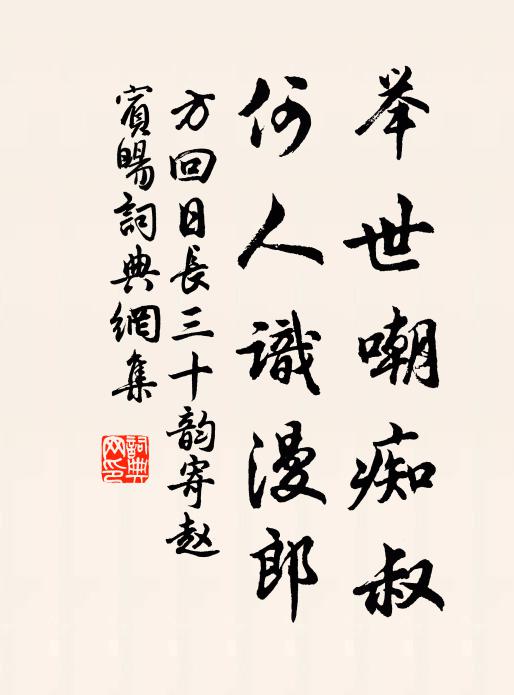 举世嘲痴叔
何人識漫郎
方回日長三十韵寄赵
賓暘詞典網集
詞典
网印